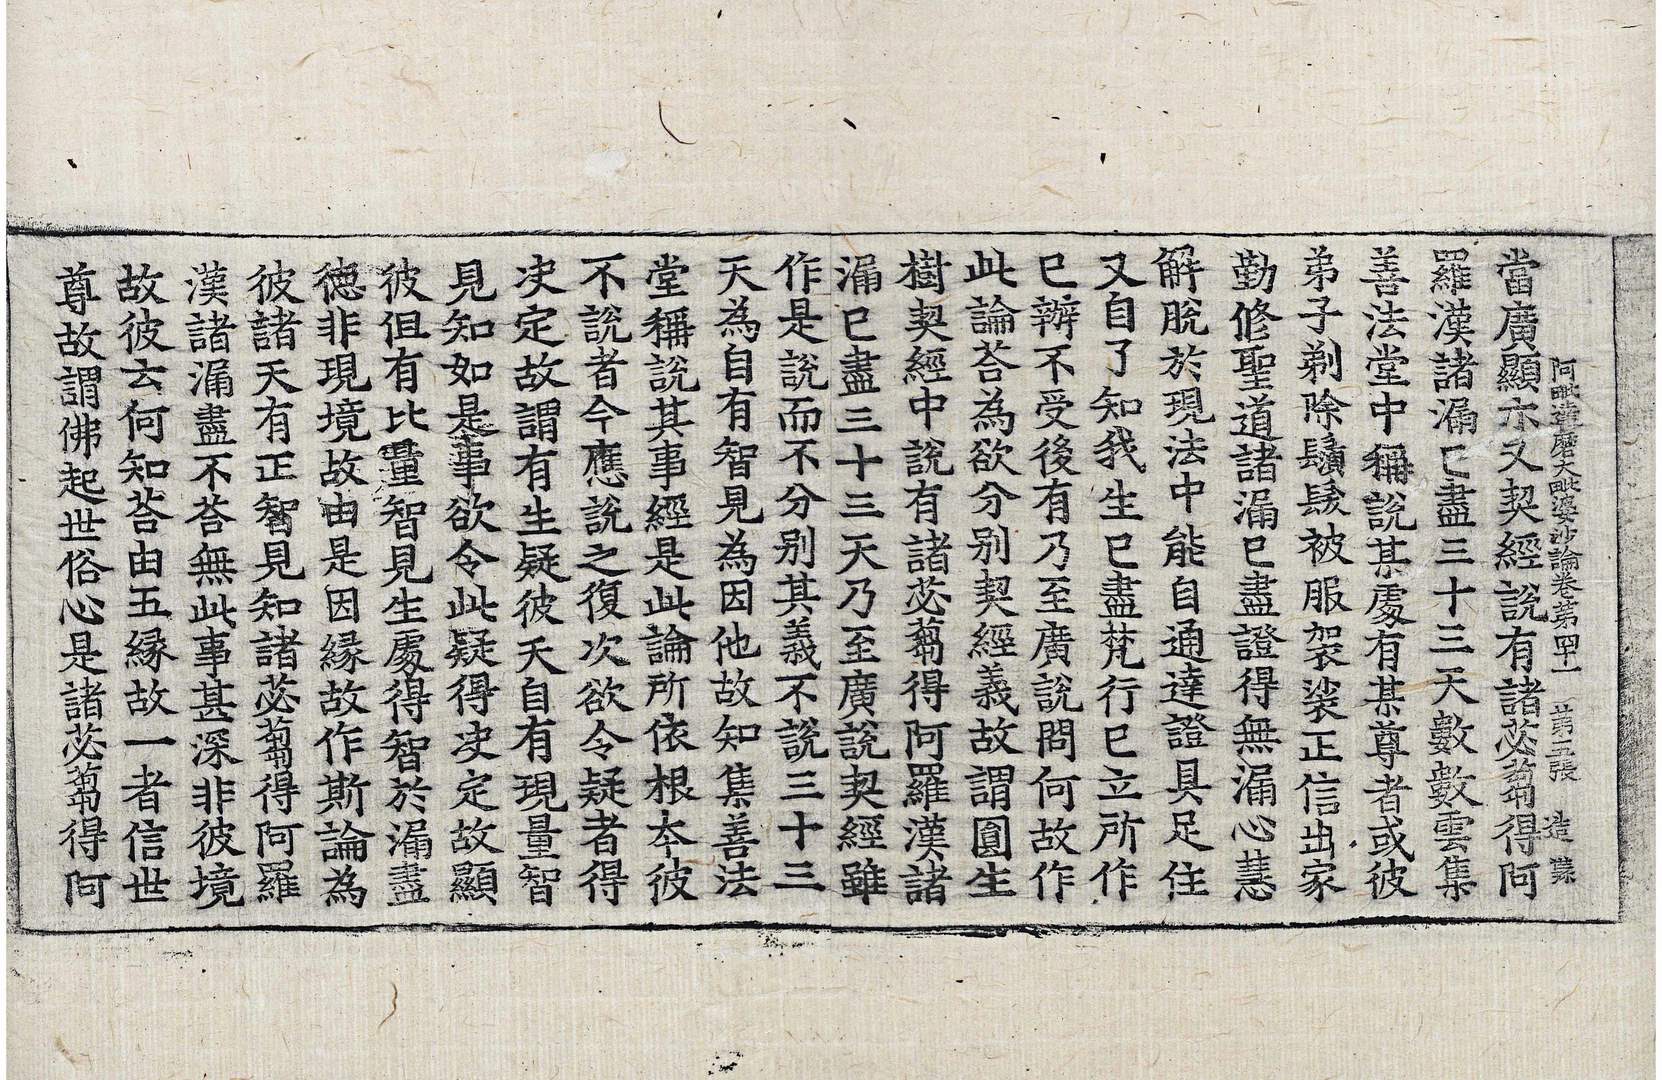 阿毗達磨大毗婆沙論卷第四十一 第五張 造
當廣顯示又契經說有諸苾蒭得阿
羅漢諸漏已盡三十三天數數雲集
善法堂中稱說某處有某尊者或彼
弟子剃除鬚髮被服袈裟正信出家
勤修聖道諸漏已盡證得無漏心慧
解脫於現法中能自通達證具足住
又自了知我生已盡梵行已立所作
已辦不受後有乃至廣說問何故作
此論荅為欲分別契經義故謂圓生
樹契經中說有諸苾蒭得阿羅漢諸
漏已盡三十三天乃至廣說契經雖
作是說而不分別其義不說三十三
天為自有智見為因他故知集善法
堂稱說其事經是此論所依根本彼
不說者今應說之復次欲令疑者得
决定故謂有生疑彼天自有現量智
見知如是事欲令此疑得决定故顯
彼但有比量智見生處得智於漏盡
德非現境故由是因緣故作斯論為
彼諸天有正智見知諸苾蒭得阿羅
漢諸漏盡不荅無此事甚深非彼境
故彼云何知荅由五緣故一者信世
尊故謂佛起世俗心是諸苾蒭得阿